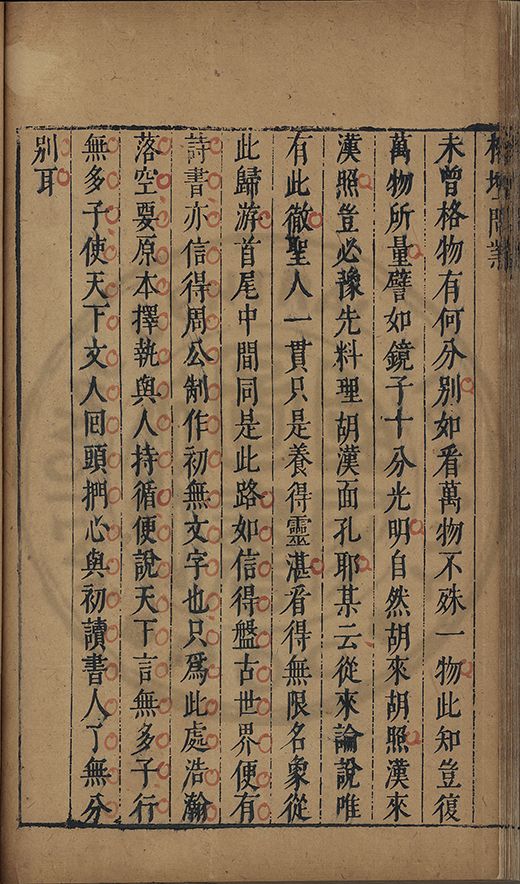 榕壇問業
未曾格物有何分別如看萬物不殊一物此知豈復
萬物所量譬如鏡子十分光明自然胡來胡照漢來
漢照豈必豫先料理胡漢面孔耶某云從來論說唯
有此徹聖人一貫只是養得靈湛看得無限名象從
此歸游首尾中間同是此路如信得盤古世界便有
詩書亦信得周公制作初無文字也只爲此處浩瀚
落空要原本擇執與人持循便說天下言無多子行
無多子使天下文人回頭捫心與初讀書人了無分
別耳